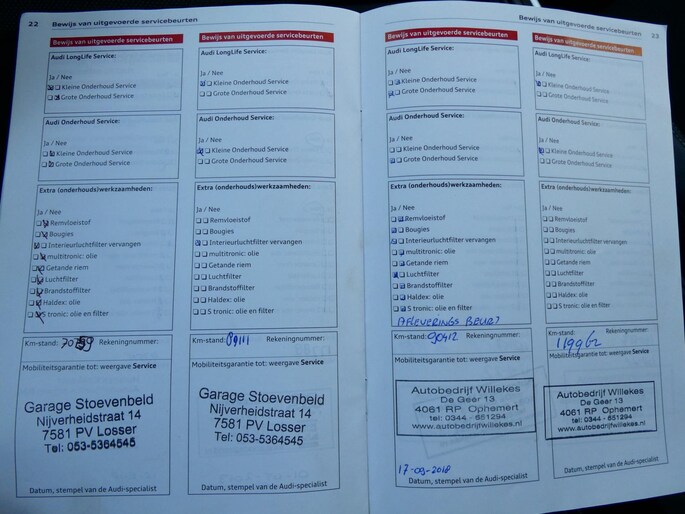 22 Bewijs van uitgevoerde servicebeurten
Bewijs van uitgevoerde servicebeurten
Audi LongLife Service:
Ja / Nee
Kleine Onderhoud Service
Grote Onderhoud Service
Audi Onderhoud Service:
Ja / Nee
Kleine Onderhoud Service
Grote Onderhoud Service
Extra (onderhouds)werkzaamheden:
Ja / Nee
Remvloeistof
Bougies
Interieurluchtfilter vervangen
multitronic: olie
Getande riem
Luchtfilter
Brandstoffilter
Haldex: olie
S tronic: olie en filter
Km-stand: Rekeningnummer:
Mobiliteitsgarantie tot: weergave Service
Garage Stoevenbeld
Nijverheidstraat 14
7581 PV Losser
Tel: 053-5364545
Datum, stempel van de Audi-specialist
Bewijs van uitgevoerde servicebeurten
Audi LongLife Service:
Ja / Nee
Kleine Onderhoud Service
Grote Onderhoud Service
Audi Onderhoud Service:
Ja / Nee
Kleine Onderhoud Service
Grote Onderhoud Service
Extra (onderhouds)werkzaamheden:
Ja / Nee
Remvloeistof
Bougies
Interieurluchtfilter vervangen
multitronic: olie
Getande riem
Luchtfilter
Brandstoffilter
Haldex: olie
S tronic: olie en filter
Km-stand: 89111 Rekeningnummer:
Mobiliteitsgarantie tot: weergave Service
Garage Stoevenbeld
Nijverheidstraat 14
7581 PV Losser
Tel: 053-5364545
Datum, stempel van de Audi-specialist
Bewijs van uitgevoerde servicebeurten 23
Bewijs van uitgevoerde servicebeurten
Audi LongLife Service:
Ja / Nee
Kleine Onderhoud Service
Grote Onderhoud Service
Audi Onderhoud Service:
Ja / Nee
Kleine Onderhoud Service
Grote Onderhoud Service
Extra (onderhouds)werkzaamheden:
Ja / Nee
Remvloeistof
Bougies
Interieurluchtfilter vervangen
multitronic: olie
Getande riem
Luchtfilter
Brandstoffilter
Haldex: olie
S tronic: olie en filter
AFLEVERINGS BEURT
Km-stand: 90412 Rekeningnummer:
Mobiliteitsgarantie tot: weergave Service
Autobedrijf Willekes
De Geer 13
4061 RP Ophemert
tel: 0344 - 651294
www.autobedrijfwillekes.nl
17-09-2018
Datum, stempel van de Audi-specialist
Bewijs van uitgevoerde servicebeurten
Audi LongLife Service:
Ja / Nee
Kleine Onderhoud Service
Grote Onderhoud Service
Audi Onderhoud Service:
Ja / Nee
Kleine Onderhoud Service
Grote Onderhoud Service
Extra (onderhouds)werkzaamheden:
Ja / Nee
Remvloeistof
Bougies
Interieurluchtfilter vervangen
multitronic: olie
Getande riem
Luchtfilter
Brandstoffilter
Haldex: olie
S tronic: olie en filter
Km-stand: 119962 Rekeningnummer:
Mobiliteitsgarantie tot: weergave Service
Autobedrijf Willekes
De Geer 13
4061 RP Ophemert
tel: 0344 - 651294
www.autobedrijfwillekes.nl
Datum, stempel van de Audi-specialist